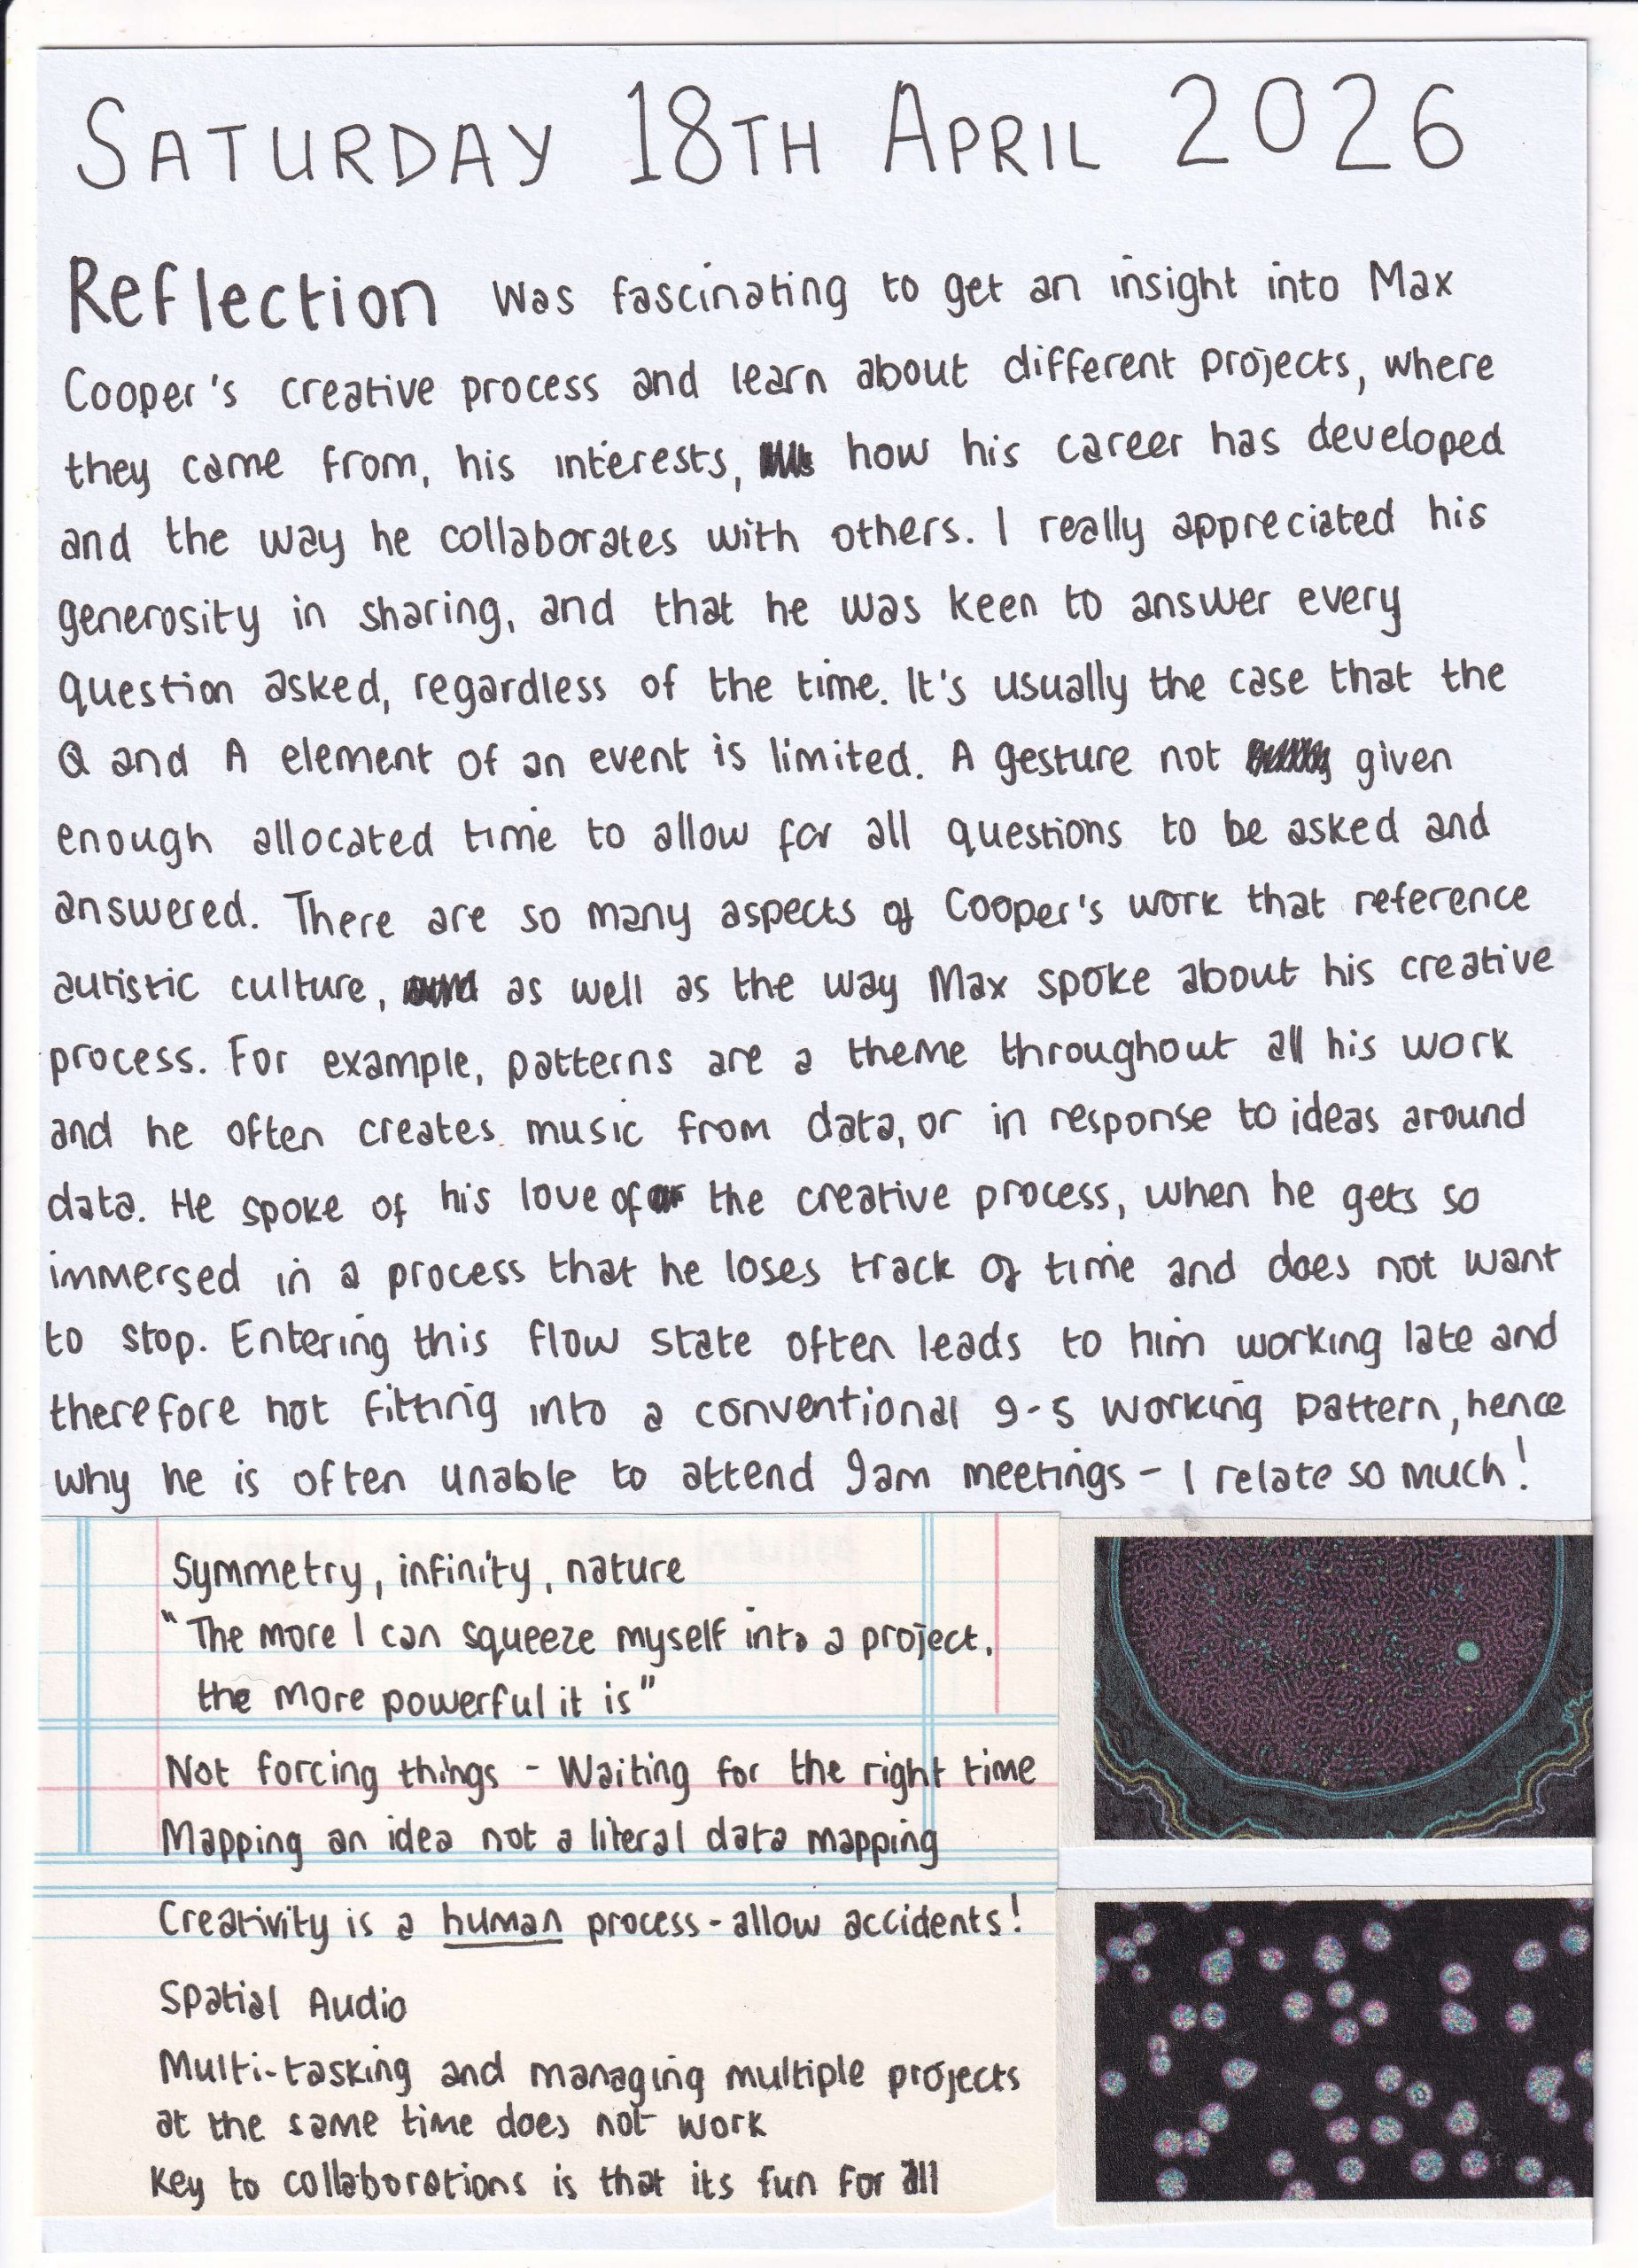 SATURDAY 18TH APRIL 2026
Reflection Was fascinating to get an insight into Max
Cooper's creative process and learn about different projects, where
they came from, his interests, how his career has developed
and the way he collaborates with others. I really appreciated his
generosity in sharing, and that he was keen to answer every
question asked, regardless of the time. It's usually the case that the
Q and A element of an event is limited. A gesture not given
enough allocated time to allow for all questions to be asked and
answered. There are so many aspects of Cooper's work that reference
autistic culture, as well as the way Max spoke about his creative
process. For example, patterns are a theme throughout all his work
and he often creates music from data, or in response to ideas around
data. He spoke of his love of the creative process, when he gets so
immersed in a process that he loses track of time and does not want
to stop. Entering this flow state often leads to him working late and
therefore not fitting into a conventional 9-5 working pattern, hence
why he is often unable to attend 9am meetings - I relate so much!
Symmetry, infinity, nature
"The more I can squeeze myself into a project,
the more powerful it is"
Not forcing things - Waiting for the right time
Mapping an idea not a literal data mapping
Creativity is a human process - allow accidents!
Spatial Audio
Multi-tasking and managing multiple projects
at the same time does not work
Key to collaborations is that its fun for all